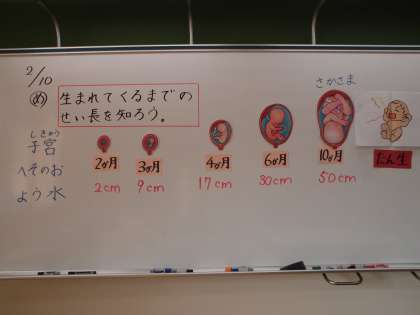 2/10
め 生まれてくるまでの
せい長を知ろう。
さかさま
しきゅう
子宮
へそのお
よう水
2か月 3か月 4か月 6か月 10か月 たん生
2cm 9cm 17cm 30cm 50cm